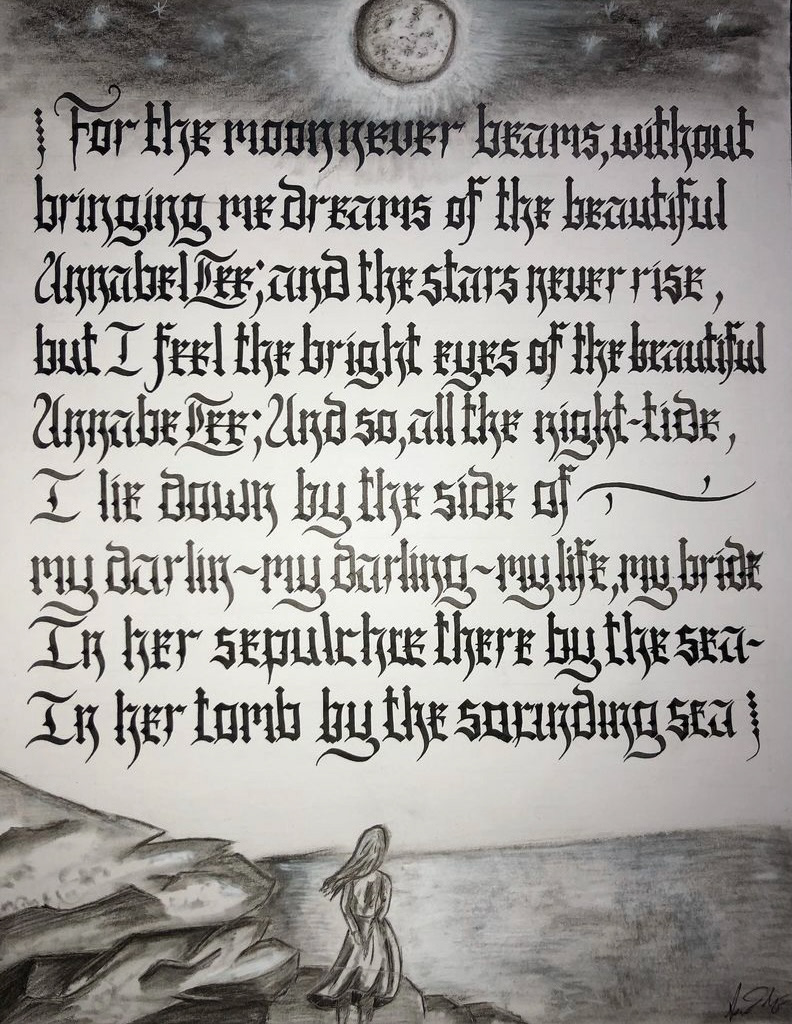 For the moon never beams, without
bringing me dreams of the beautiful
Annabel Lee; and the stars never rise,
but I feel the bright eyes of the beautiful
Annabe Lee; And so, all the night-tide,
I lie down by the side of
my darlin~my darling~my life, my bride
In her sepulchre there by the sea-
In her tomb by the sounding sea